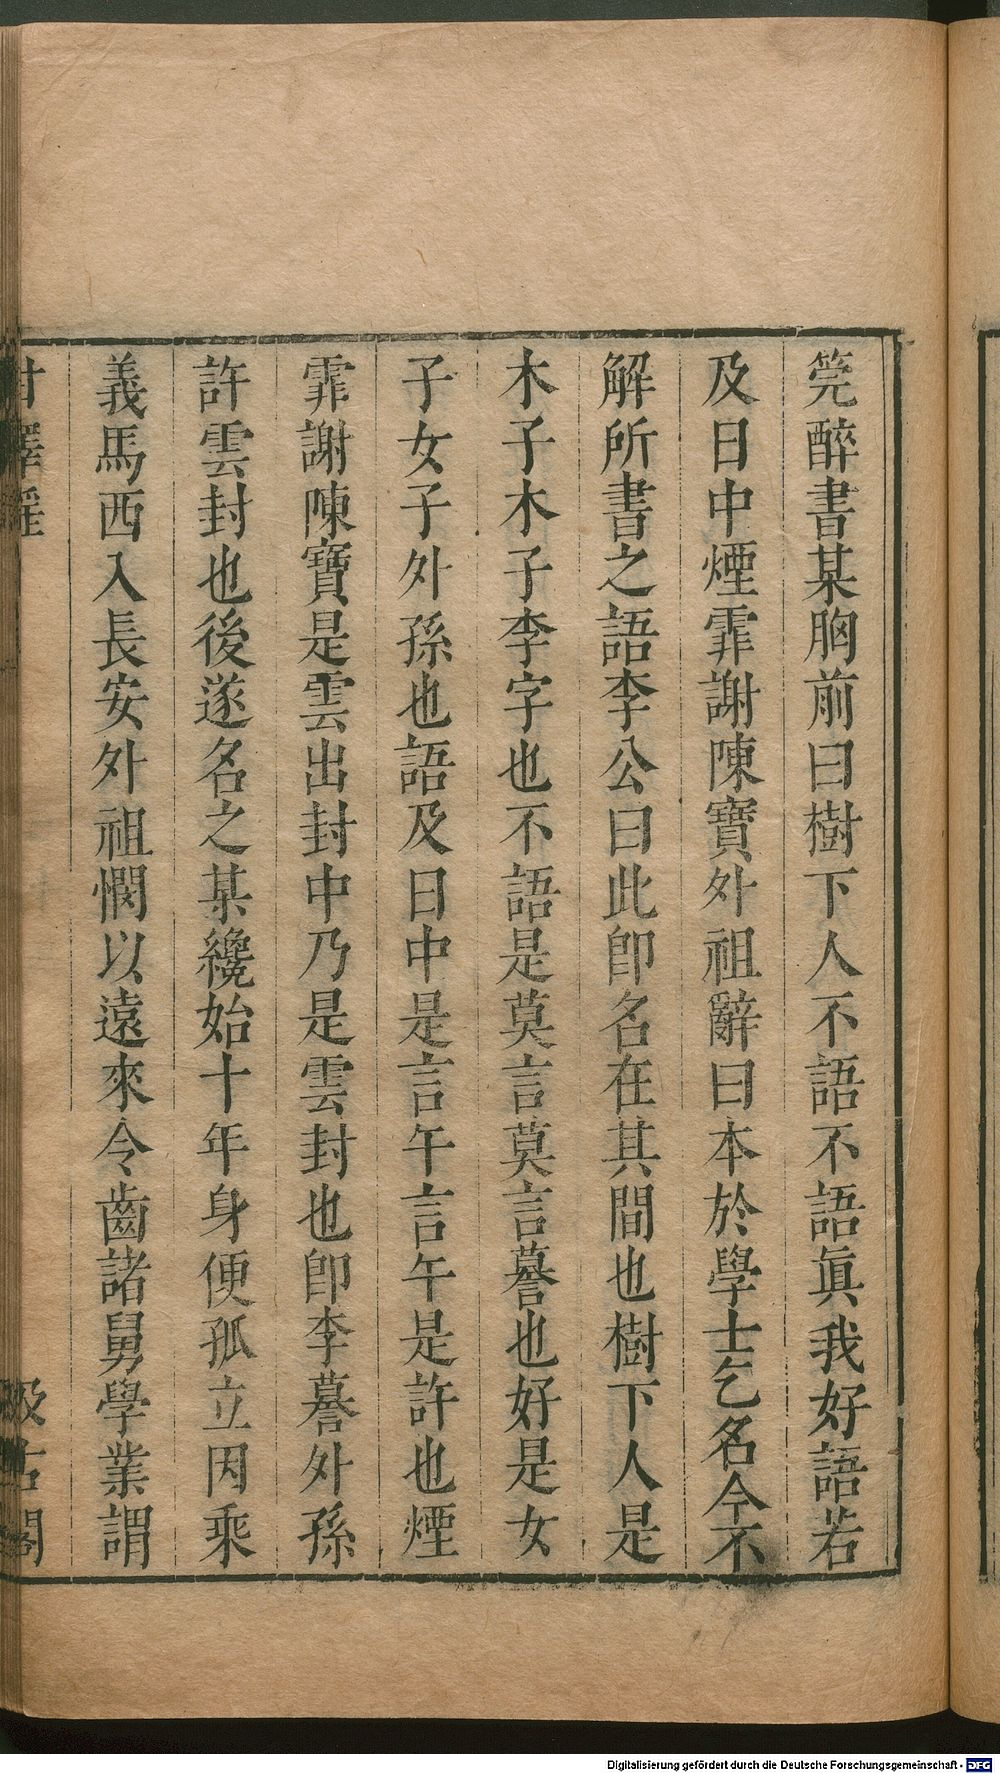 筦醉書某胸前曰樹下人不語不語眞我好語若
及日中煙霏謝陳寶外祖辭曰本於學士乞名今不
解所書之語李公曰此卽名在其間也樹下人是
木子木子李字也不語是莫言莫言謩也好是女
子女子外孫也語及日中是言午言午是許也煙
霏謝陳寶是雲出封中乃是雲封也卽李謩外孫
許雲封也後遂名之某纔始十年身便孤立因乘
義馬西入長安外祖憫以遠來令齒諸舅學業謂
甘澤謠
汲古閣
Digitalisierung gefördert durch die Deutsche Forschungsgemeinschaft - DFG